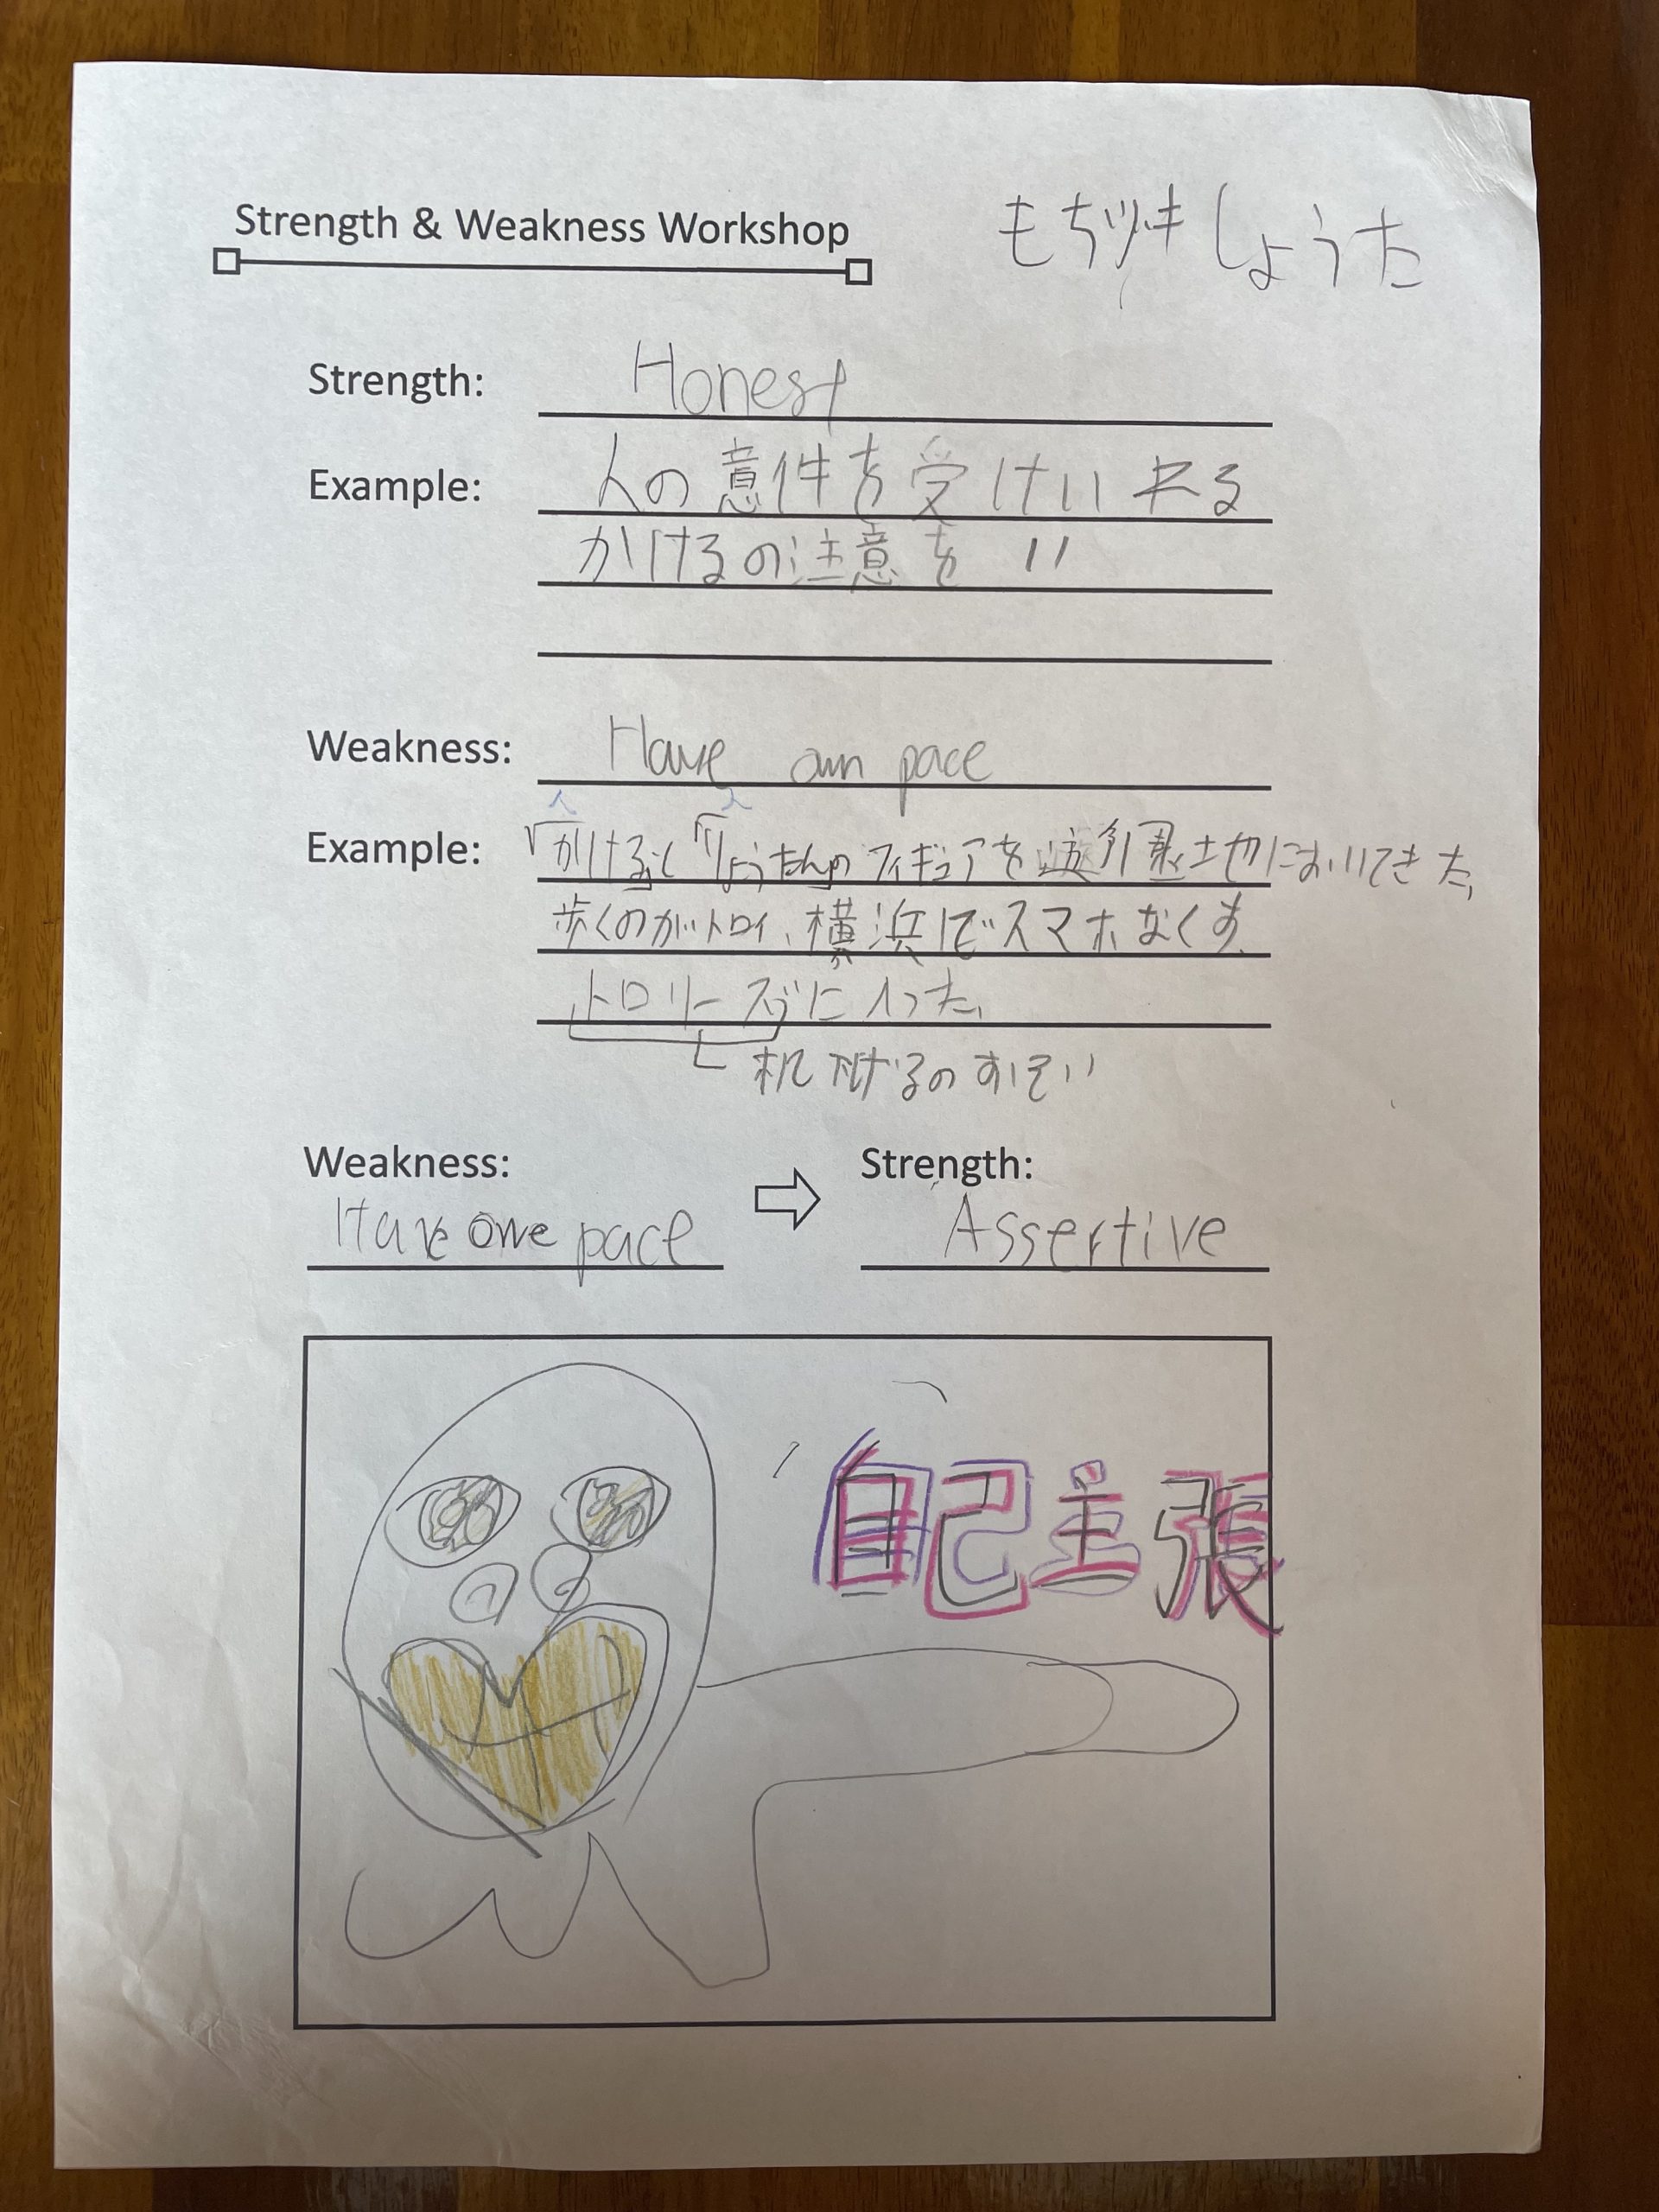 Strength & Weakness Workshop
もちづき しょうた
Strength: Honest
Example: 人の意件を受けいれる
かけるの注意を 〃
Weakness: Have own pace
Example: かける りょうたんのフィギュアを 土地においてきた、
歩くのがトロイ、横浜でスマホなくす、
トロリーズに入った、
机 下げるのおそい
Weakness:
Have owe pace
Strength:
Assertive
自己主張